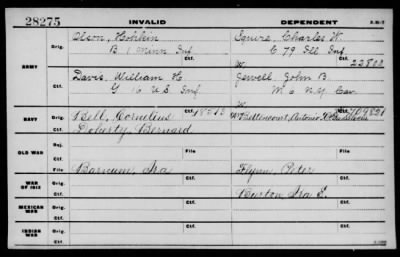 28275 INVALID DEPENDENT
ARMY
Orig. Olson, Hohkin Squire, Charles W.
B 1 Minn Inf. C 79 Ill Inf.
Ctf. W. 22802
Orig. Davis, William H. Jewell, John B.
G 16 U.S. Inf. M 2 N.Y. Cav.
Ctf. W.
NAVY
Orig. Bell, Cornelius Ctf. 18013 Antonio
Ctf. Doherty, Bernard
File
OLD WAR
Inj.
Ctf.
File
WAR OF 1812
Orig. Barnum, Ira Flynn, Peter
Ctf. Burton, Ira
MEXICAN WAR
Orig.
Ctf.
INDIAN WAR
Orig.
Ctf.